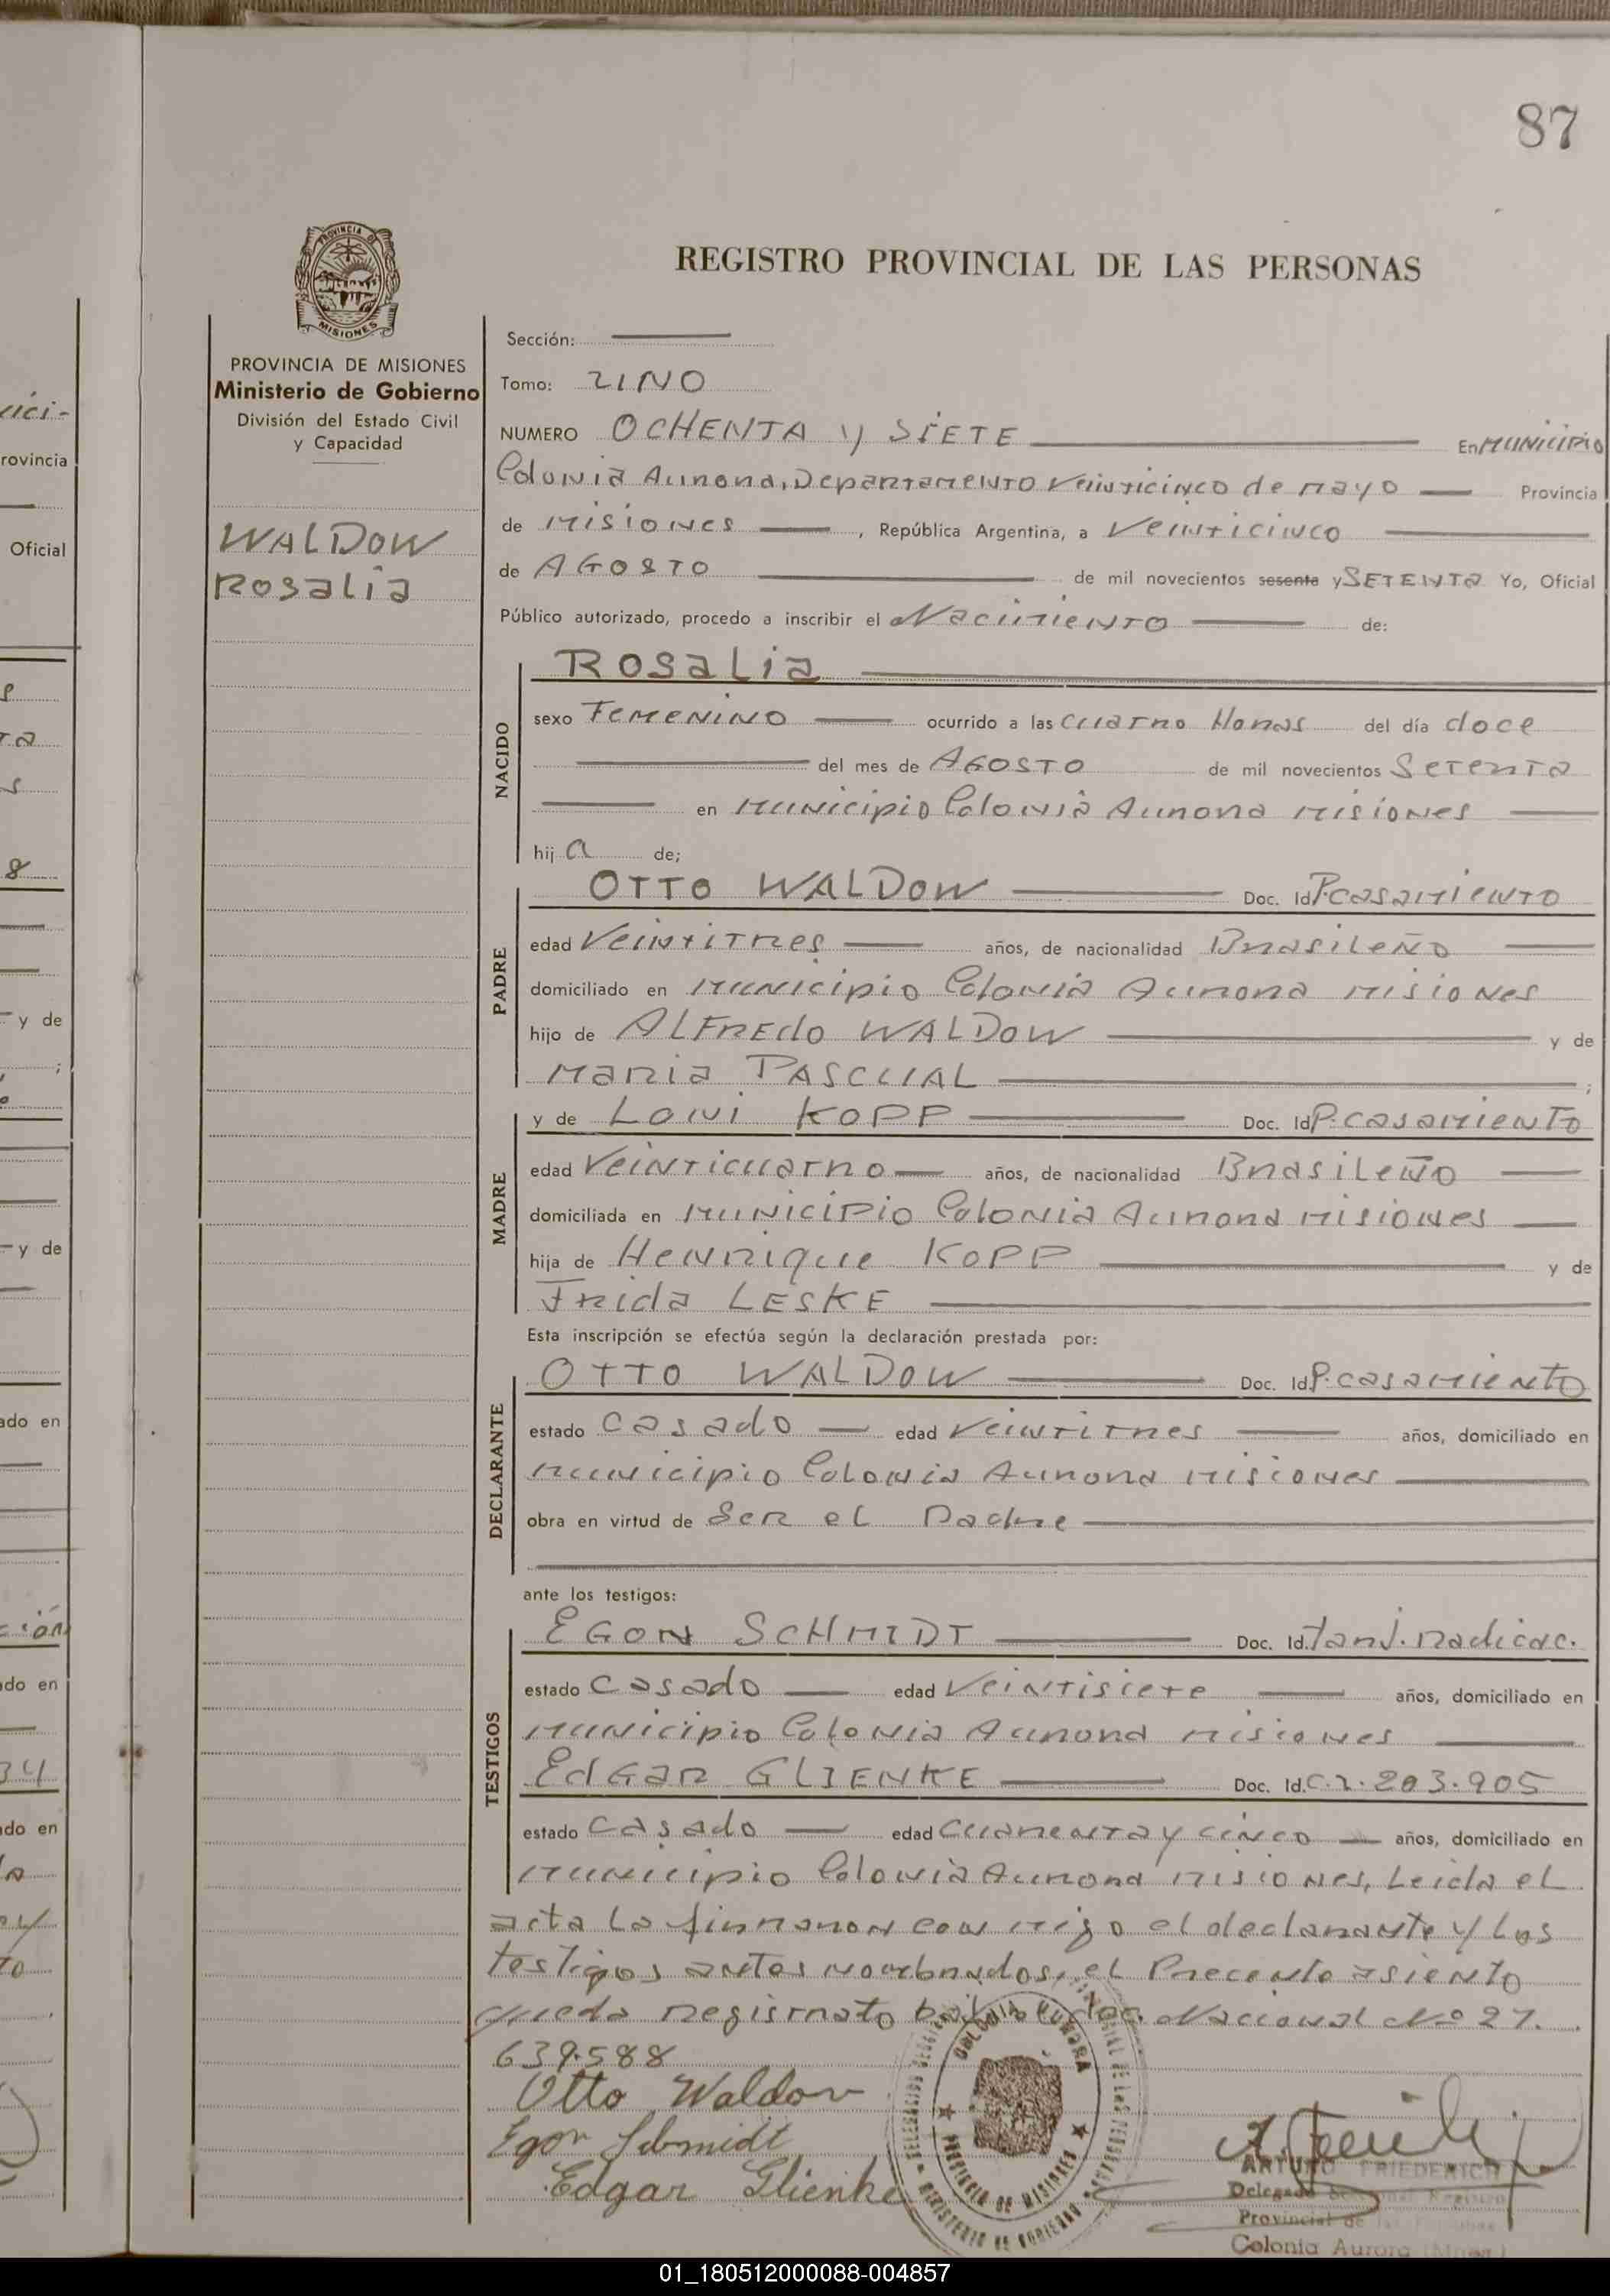 87
REGISTRO PROVINCIAL DE LAS PERSONAS
PROVINCIA DE
MISIONES
PROVINCIA DE MISIONES
Ministerio de Gobierno
División del Estado Civil
y Capacidad
WALDOW
Rosalia
Sección:
Tomo: UNO
NUMERO OCHENTA y SIETE En MUNICIPIO
Colonia Aurora, Departamento Veinticinco de mayo Provincia
de Misiones , República Argentina, a Veinticinco
de AGOSTO de mil novecientos sesenta y SETENTA Yo, Oficial
Público autorizado, procedo a inscribir el Nacimiento de:
NACIDO
Rosalia
sexo Femenino ocurrido a las cuatro Horas del día doce
del mes de AGOSTO de mil novecientos Setenta
en municipio Colonia Aurora misiones
hij a de;
PADRE
OTTO WALDOW Doc. Id P.casamiento
edad Veintitres años, de nacionalidad Brasileño
domiciliado en municipio Colonia Aurora misiones
hijo de ALFREdo WALDOW y de
Maria PASCUAL ;
MADRE
y de Loni KOPP Doc. Id P.casamiento
edad Veinticuatro años, de nacionalidad Brasileño
domiciliada en municipio Colonia Aurora misiones
hija de Henrique KOPP y de
Frida LESKE
Esta inscripción se efectúa según la declaración prestada por:
DECLARANTE
OTTO WALDOW Doc. Id P.casamiento
estado casado edad Veintitres años, domiciliado en
municipio Colonia Aurora misiones
obra en virtud de Ser el Padre
ante los testigos:
TESTIGOS
EGON SCHMIDT Doc. Id. Tarj. Radicac.
estado casado edad Veintisiete años, domiciliado en
municipio Colonia Aurora misiones
EdGaR GLIENKE Doc. Id. C.I. 203.905
estado casado edad cuarenta y cinco años, domiciliado en
municipio Colonia Aurora misiones, Leida el
acta la firmaron con migo el declarante y los
testigos antes nombrados, el Precente asiento
queda registrato bajo el doc. Nacional No 21.
639.588
Otto Waldow
Egon Schmidt
Edgar Glienke
COLONIA AURORA
PROVINCIA DE MISIONES
MINISTERIO DE GOBIERNO
ARTURO FRIEDERICH
Delegado Registro
Provincial de las
Colonia Aurora (Mnes.)
01_180512000088-004857